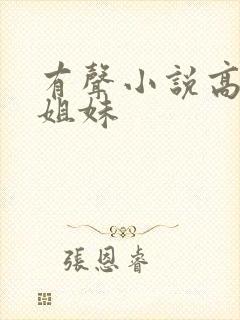 有聲小說高
姐妹
張恩睿